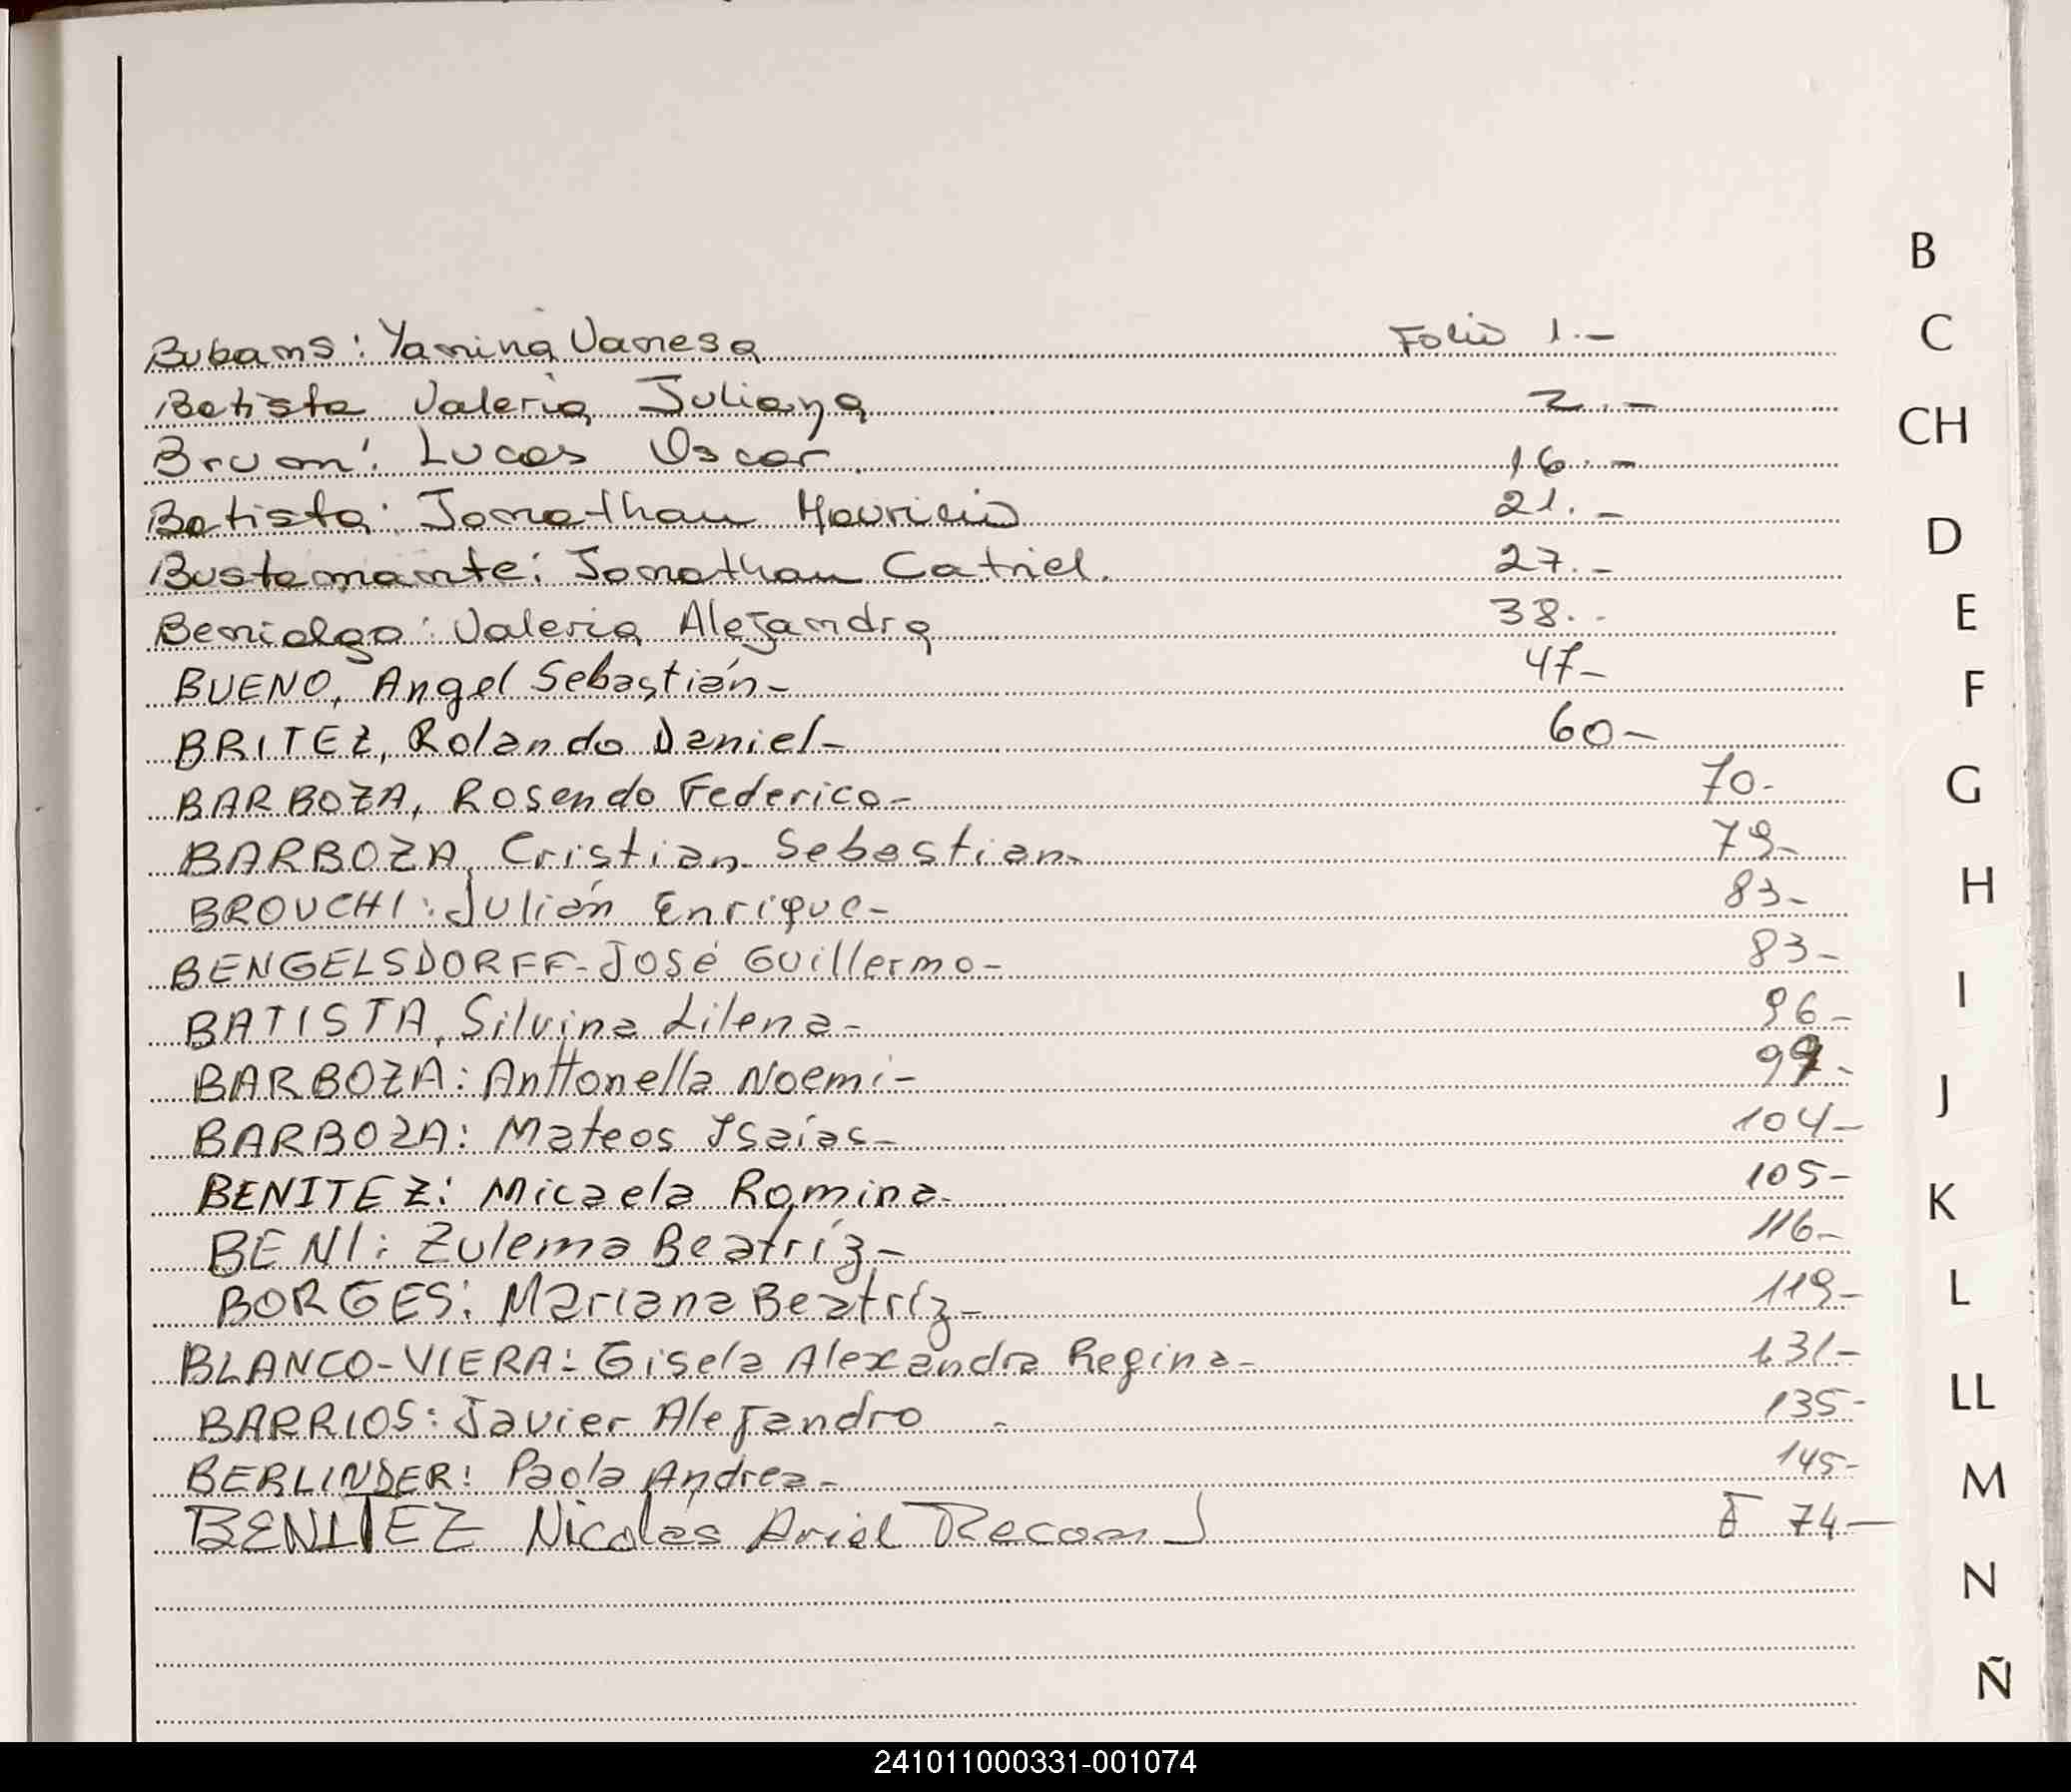 Bubans: Yanina Vanesa Folio 1.-
Batista Valeria Juliana 2.-
Brum: Lucas Oscar 16.-
Batista: Jonathan Mauricio 21.-
Bustamante: Jonathan Catriel. 27.-
Valeria Alejandra 38.-
BUENO, Angel Sebastián- 47-
BRITEZ, Rolando Daniel- 60-
BARBOZA, Rosendo Federico- 70-
BARBOZA, Cristian Sebastian- 79-
BROUCHI: Julián Enrique- 83-
BENGELSDORFF- José Guillermo- 83-
BATISTA, Silvina Lilena- 96-
BARBOZA: Anttonella Noemi- 99-
BARBOZA: Mateos Isaías- 104-
BENITEZ: Micaela Romina- 105-
BENI: Zulema Beatríz- 116-
BORGES: Mariana Beatríz- 119-
BLANCO-VIERA: Gisela Alexandra Regina- 131-
BARRIOS: Javier Alejandro - 135-
BERLINDER: Paola Andrea- 145-
BENITEZ Nicolás Ariel F 74-
B
C
CH
D
E
F
G
H
I
J
K
L
LL
M
N
Ñ
241011000331-001074